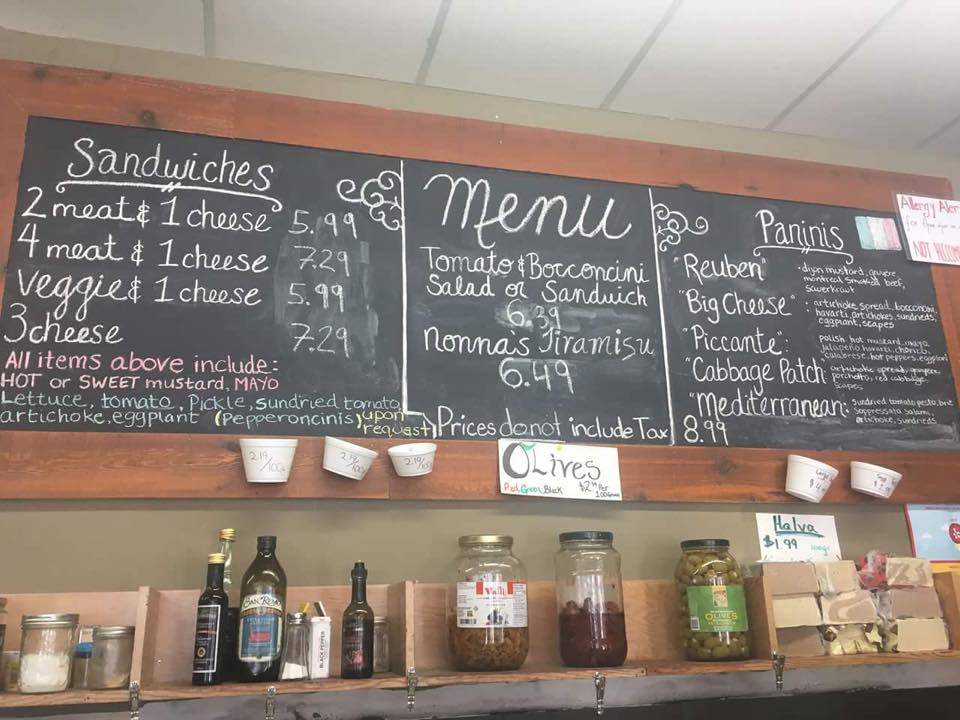 Sandwiches
2 meat & 1 cheese 5.99
4 meat & 1 cheese 7.29
Veggie & 1 cheese 5.99
3 cheese 7.29
All items above include:
HOT or SWEET mustard, MAYO
Lettuce, tomato, Pickle, sundried tomato,
artichoke, eggplant (Pepperoncinis) upon
request
Menu
Tomato & Bocconcini
Salad or Sandwich
6.39
Nonna's Tiramisu
6.49
Prices do not include Tax
Paninis
"Reuben" • dijon mustard, gruyere
montreal smoked beef,
sauerkraut
"Big Cheese" • artichoke spread, bocconcini,
havarti, artichokes, sundrieds,
eggplant, scapes
"Piccante": polish hot mustard, mayo
jalapeño havarti, chorizo,
calabrese, hot peppers, eggplant
"Cabbage Patch" artichoke spread,
porchetto, red cabbage,
scapes
"Mediterranean: sundried tomato pesto, brie
soppressata salami,
artichoke, sundrieds
8.99
Allergy Aler
NOT
2.19/100g
2.19/100g
2.19/100g
OLives
Red, Green, Black
Per
Halva
$1.99
SAN REMO
BLACK PEPPER
OLIVES